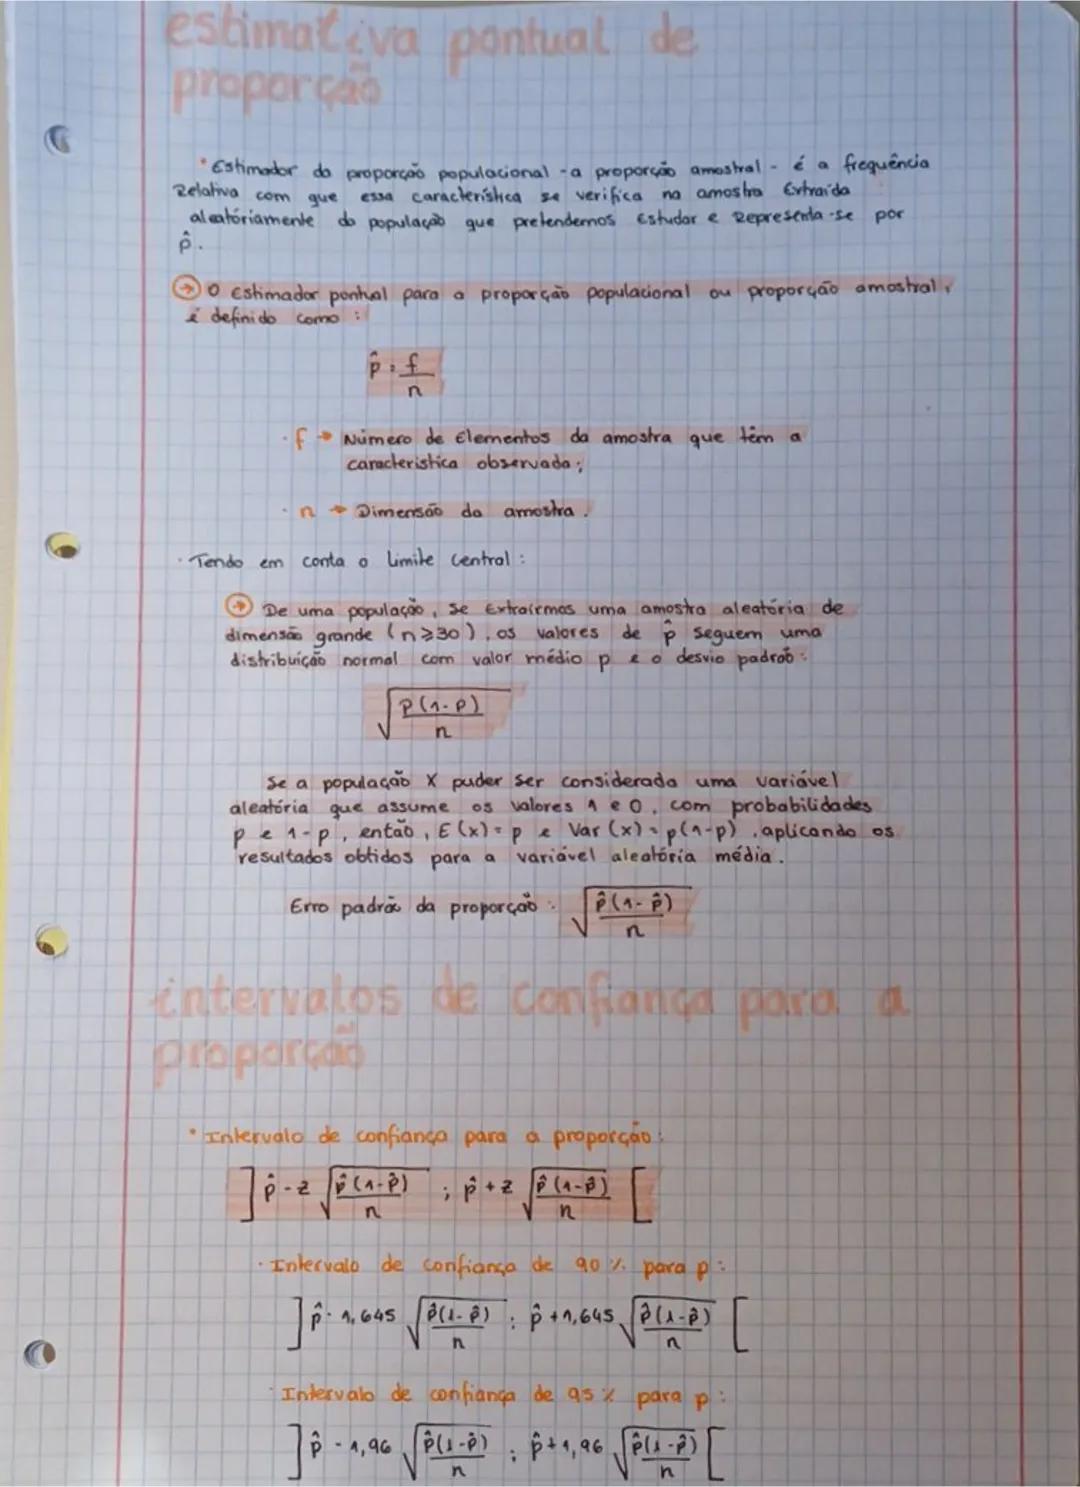 estimativa pontual de
proporção
• Estimador da proporção populacional - a proporção amostral - é a frequência
Relativa com que essa característica se verifica na amostra Extraída
aleatóriamente da população que pretendemos Estudar e Representa-se por
p̂.
→ O Estimador pontual para a proporção populacional ou proporção amostral,
é definido como:
p̂ = f/n
· f → Número de Elementos da amostra que têm a
caracteristica observada;
· n → Dimensão da amostra.
· Tendo em conta o Limite Central:
→ De uma população, se Extrairmos uma amostra aleatória de
dimensão grande (n≥30), os valores de p̂ seguem uma
distribuição normal com valor médio p e o desvio padrão:
√(p(1-p)/n)
Se a população X puder ser considerada uma variável
aleatória que assume os valores 1 e 0, com probabilidades
p e 1-p, então, E(x)=p e Var(x)=p(1-p), aplicando os
resultados obtidos para a variável aleatória média.
Erro padrão da proporção: √(p̂(1-p̂)/n)
intervalos de confiança para a
proporção
• Intervalo de confiança para a proporção:
]p̂ - z √(p̂(1-p̂)/n) ; p̂ + z √(p̂(1-p̂)/n)[
· Intervalo de confiança de 90% para p:
]p̂ - 1,645 √(p̂(1-p̂)/n) ; p̂ + 1,645 √(p̂(1-p̂)/n)[
· Intervalo de confiança de 95% para p:
]p̂ - 1,96 √(p̂(1-p̂)/n) ; p̂ + 1,96 √(p̂(1-p̂)/n)[